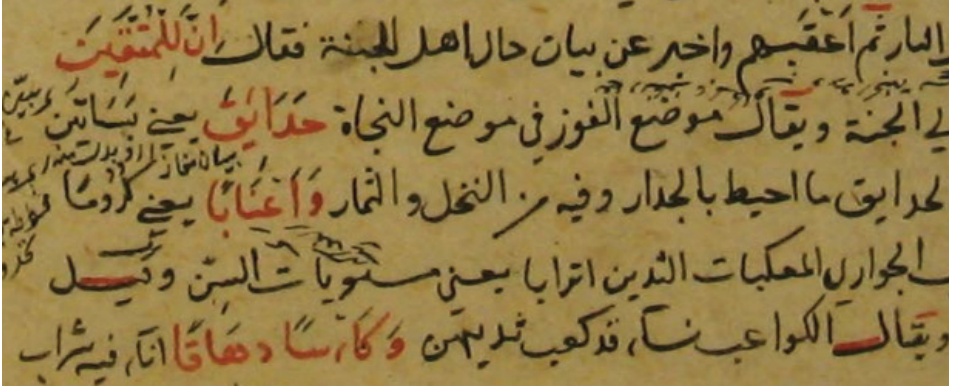 النار ثم اعقبهم واخبر عن بيان حال اهل الجنة فقال اِنَّ لِلْمُتَّقِينَ
الجنة ويقال موضع الفوز في موضع النجاة حَدَايِقَ يعني بَسَاتين
لحدايق ما احيط بالجدار وفيه من النخل والثمار وَاَعْنَابًا يعني كرومًا
الجواري المعكبات الثدين اترابا يعني مستويات السِنّ وقيل
ويقال الكواعب نساء قد كعب ثديهن وَكَاْسًا دِهَاقًا اناء فيه شراب